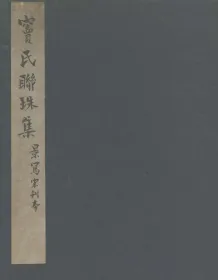 竇氏聯珠集
景寫宋刊本